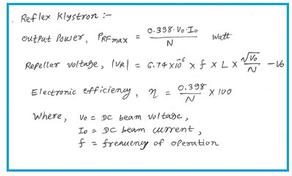 Reflex Klystron :-
Output Power, PRFmax = 0.398·V0·I0 / N Watt
Repeller voltage, |VR| = 6.74×10⁻⁶ × f × L × √V0 / N - V0
Electronic efficiency, η = 0.398 / N × 100
Where, V0 = DC beam voltage,
I0 = DC beam current,
f = frequency of operation